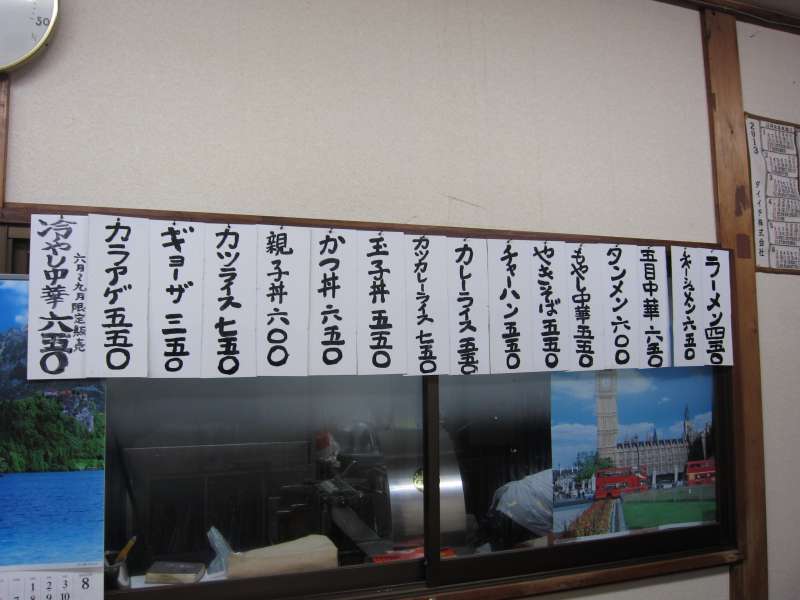 ラーメン 四五〇
チャーシューメン 六五〇
五目中華 六五〇
タンメン 六〇〇
もやし中華 五五〇
やきそば 五五〇
チャーハン 五五〇
カレーライス 五五〇
カツカレーライス 七五〇
玉子丼 五五〇
かつ丼 六五〇
親子丼 六〇〇
カツライス 七五〇
ギョーザ 三五〇
カラアゲ 五五〇
六月〜九月限定販売
冷やし中華 六五〇
2013
ダイイチ株式会社
50
8
1 2 3
8 9 10